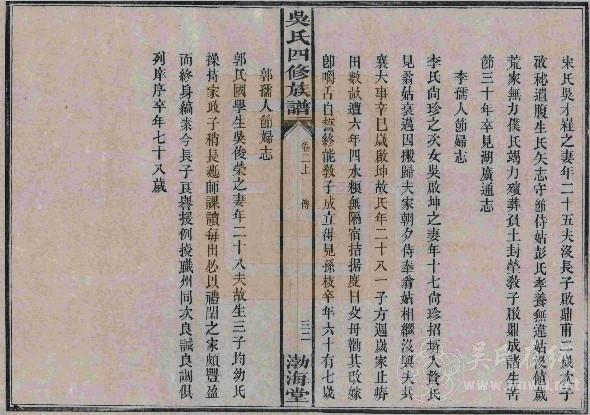 宋氏吳才䧺之妻年二十五夫沒長子啟鼎甫三歲次子
啟 遺腹生氏矢志守節侍姑彭氏孝養無違姑沒值歲
荒家無力僕氏竭力殯葬負土封塋教子啟鼎成諸生苦
節三十年卒見湖廣通志
李孺人節婦志
李氏尚珍之次女吳啟坤之妻年十七尚珍招壻入贅氏
見翁姑衰邁因搬歸夫家朝夕侍奉翁姑相繼沒與夫共
襄大事辛巳歲啟坤故氏年二十八一子方週歲家止瘠
田數畝遭六年四水極無隔宿拮据度日父母勸其改嫁
卽嚼舌自誓終能教子成立得見孫枝卒年六十有七歲
郭孺人節婦志
郭氏國學生吳俊榮之妻年二十八夫故生三子均幼氏
操持家政子稍長延師課讀每出必以禮閑之家頗豐盈
而終身縞素今長子良譽援例授職州同次良誠良調俱
列庠序卒年七十八歲
吳氏四修族譜
卷二上
傳
三二
渤海堂
吴氏网